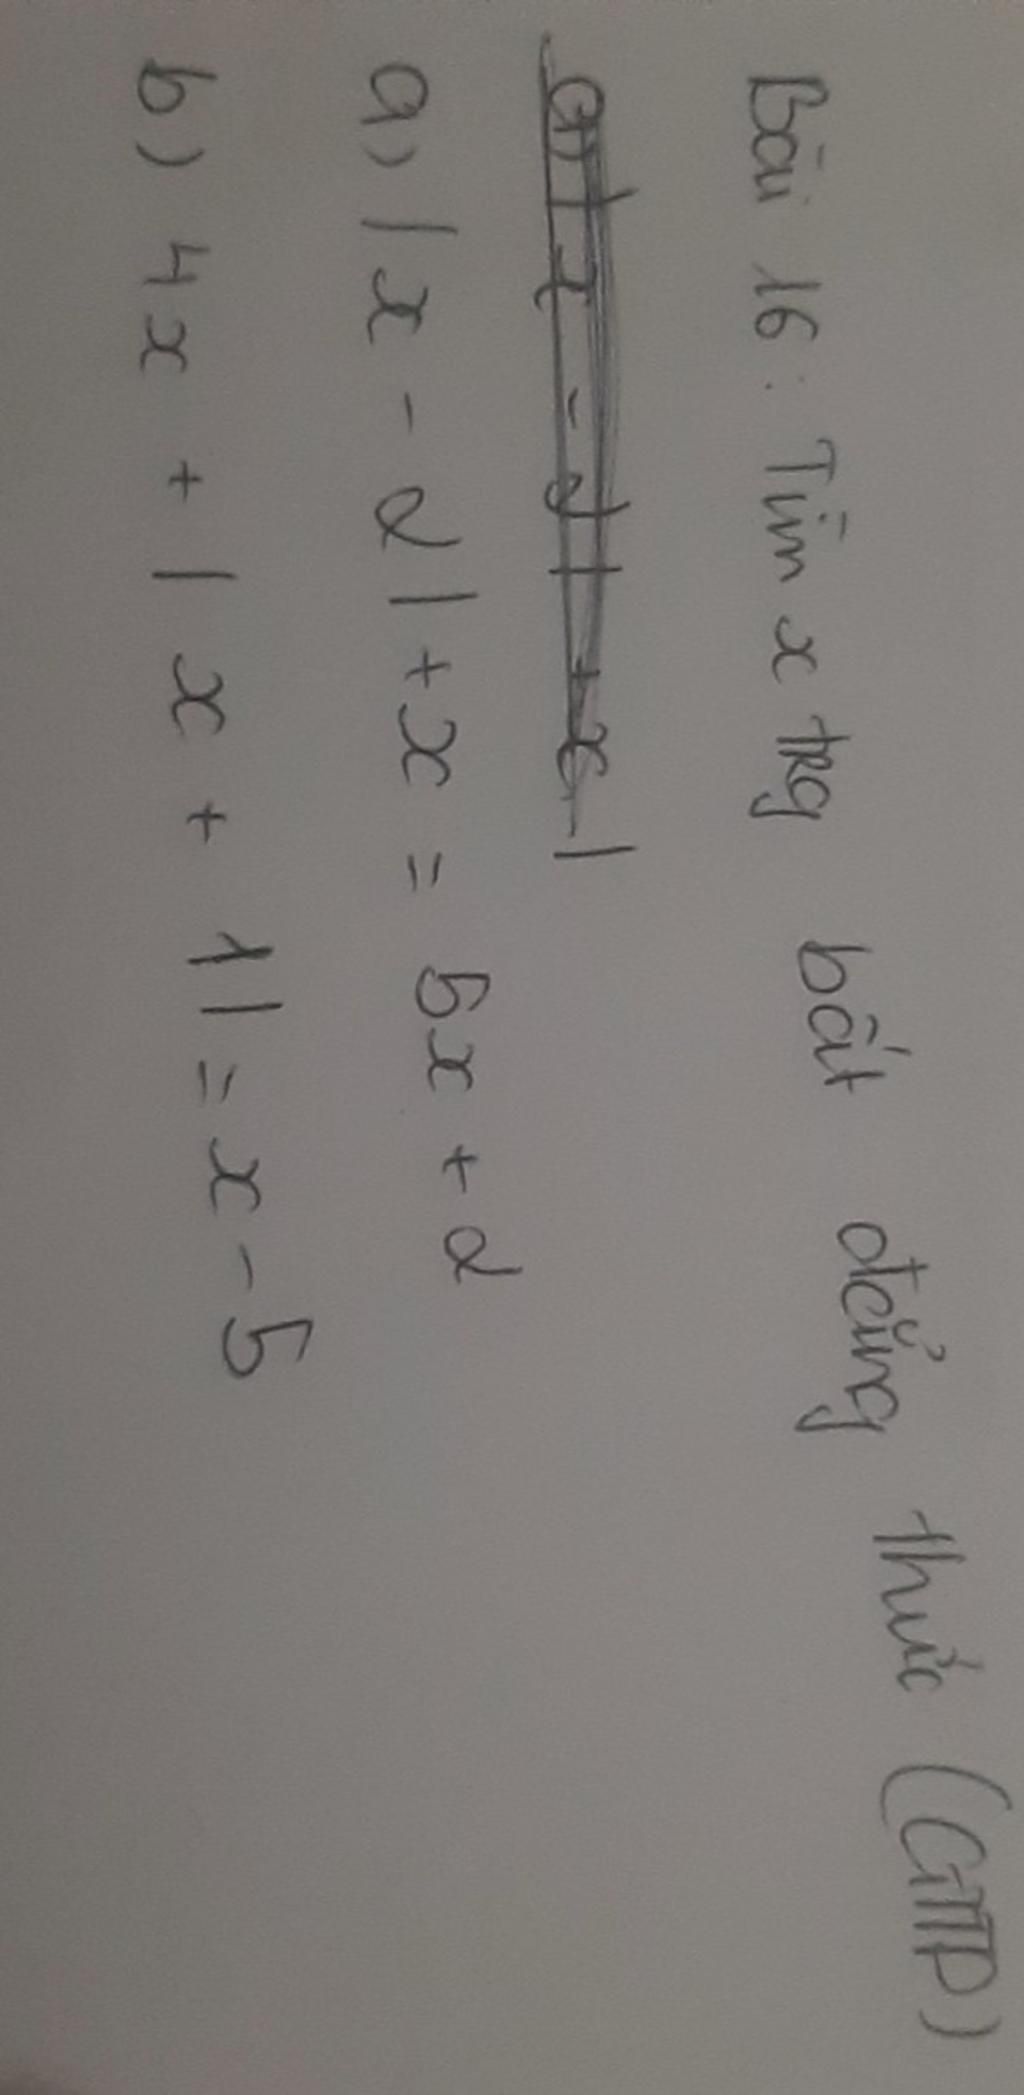 Bài 16: Tìm x trg bất đẳng thức (GTTĐ)
a) |x - 2| + x - 1
a) |x - 2| + x = 5x + 2
b) 4x + |x + 1| = x - 5